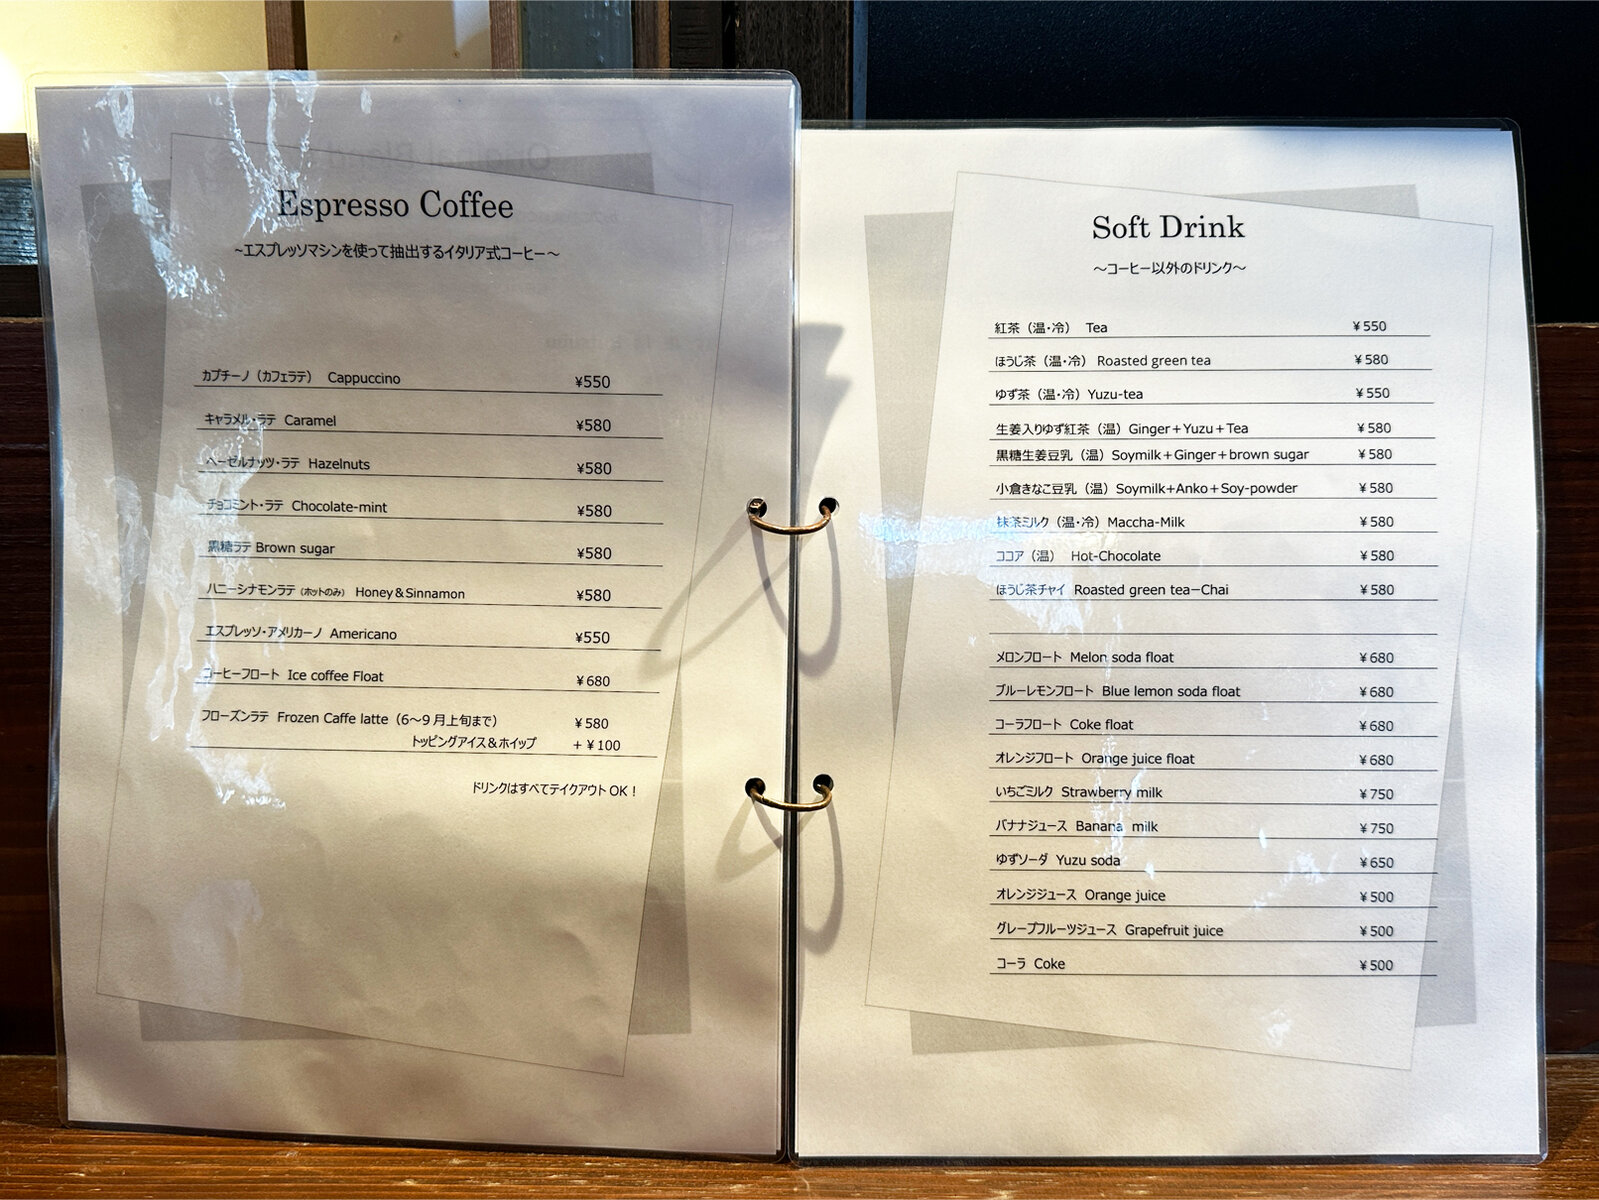 Espresso Coffee
~エスプレッソマシンを使って抽出するイタリア式コーヒー～
カプチーノ（カフェラテ） Cappuccino ¥550
キャラメル・ラテ Caramel ¥580
ヘーゼルナッツ・ラテ Hazelnuts ¥580
チョコミント・ラテ Chocolate-mint ¥580
黒糖ラテ Brown sugar ¥580
ハニーシナモンラテ（ホットのみ） Honey＆Sinnamon ¥580
エスプレッソ・アメリカーノ Americano ¥550
コーヒーフロート Ice coffee Float ¥680
フローズンラテ Frozen Caffe latte（6～9月上旬まで） ¥580
トッピングアイス＆ホイップ +¥100
ドリンクはすべてテイクアウトOK！
Soft Drink
～コーヒー以外のドリンク～
紅茶（温・冷） Tea ¥550
ほうじ茶（温・冷） Roasted green tea ¥580
ゆず茶（温・冷）Yuzu-tea ¥550
生姜入りゆず紅茶（温）Ginger＋Yuzu＋Tea ¥580
黒糖生姜豆乳（温）Soymilk＋Ginger＋brown sugar ¥580
小倉きなこ豆乳（温）Soymilk+Anko＋Soy-powder ¥580
抹茶ミルク（温・冷）Maccha-Milk ¥580
ココア（温） Hot-Chocolate ¥580
ほうじ茶チャイ Roasted green tea－Chai ¥580
メロンフロート Melon soda float ¥680
ブルーレモンフロート Blue lemon soda float ¥680
コーラフロート Coke float ¥680
オレンジフロート Orange juice float ¥680
いちごミルク Strawberry milk ¥750
バナナジュース Banana milk ¥750
ゆずソーダ Yuzu soda ¥650
オレンジジュース Orange juice ¥500
グレープフルーツジュース Grapefruit juice ¥500
コーラ Coke ¥500